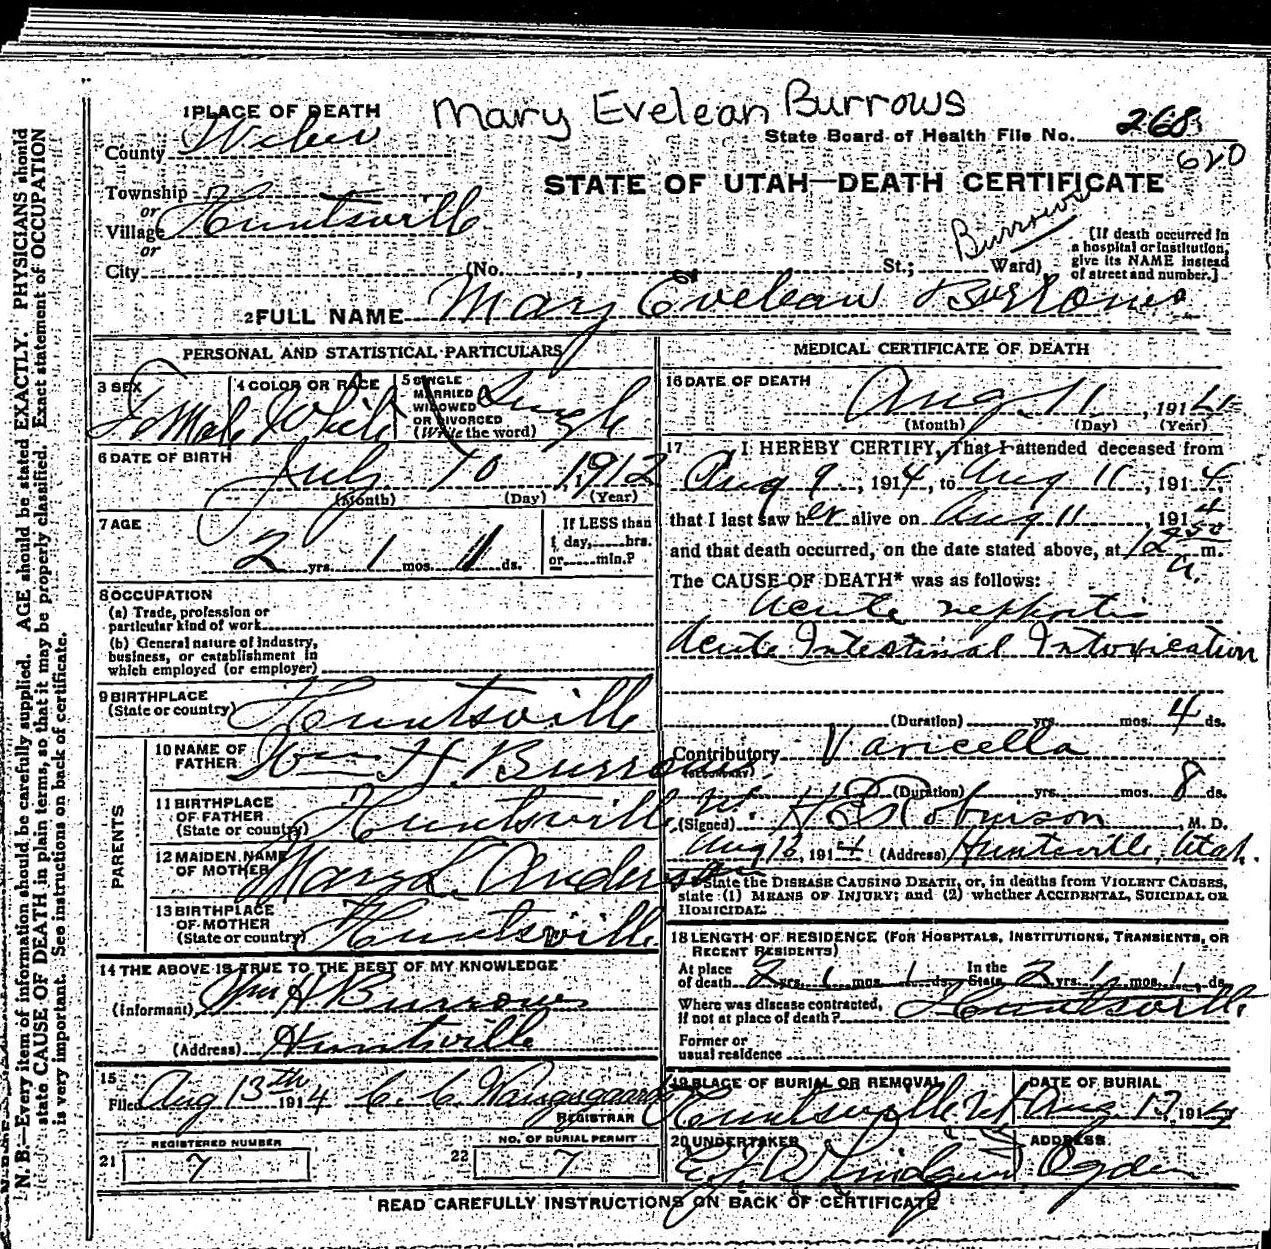 Mary Evelean Burrows
1 PLACE OF DEATH
State Board of Health File No. 268
620
County Weber
STATE OF UTAH—DEATH CERTIFICATE
Township
or
Village Huntsville
or
City (No. , St.; Ward)
Burrows
(If death occurred in
a hospital or institution,
give its NAME instead
of street and number.]
2 FULL NAME Mary Evelean Burrows
PERSONAL AND STATISTICAL PARTICULARS
3 SEX
Female
4 COLOR OR RACE
White
5 SINGLE
MARRIED
WIDOWED
OR DIVORCED
(Write the word)
Single
6 DATE OF BIRTH
July 10, 1912
(Month) (Day) (Year)
7 AGE
2 yrs. 1 mos. 1 ds.
If LESS than
1 day, hrs.
or min.?
8 OCCUPATION
(a) Trade, profession or
particular kind of work
(b) General nature of industry,
business, or establishment in
which employed (or employer)
9 BIRTHPLACE
(State or country) Huntsville
PARENTS
10 NAME OF
FATHER Wm H. Burrows
11 BIRTHPLACE
OF FATHER
(State or country) Huntsville Ut.
12 MAIDEN NAME
OF MOTHER Mary L. Anderson
13 BIRTHPLACE
OF MOTHER
(State or country) Huntsville
14 THE ABOVE IS TRUE TO THE BEST OF MY KNOWLEDGE
(Informant) Wm H Burrows
(Address) Huntsville
15
Filed Aug 13th 1914 C. C. Wangsgaard
REGISTRAR
REGISTERED NUMBER
21 7
NO. OF BURIAL PERMIT
22 7
MEDICAL CERTIFICATE OF DEATH
16 DATE OF DEATH
Aug. 11, 1914
(Month) (Day) (Year)
17 I HEREBY CERTIFY, That I attended deceased from
Aug 9, 1914, to Aug 11, 1914,
that I last saw her alive on Aug 11, 1914
and that death occurred, on the date stated above, at 12 50 a. m.
The CAUSE OF DEATH* was as follows:
Acute nephritis
Acute Intestinal Intoxication
(Duration) yrs. mos. 4 ds.
Contributory Varicella
(SECONDARY)
(Duration) yrs. mos. 8 ds.
(Signed) H E Robinson, M. D.
Aug 13, 1914 (Address) Huntsville, Utah.
*State the DISEASE CAUSING DEATH, or, in deaths from VIOLENT CAUSES,
state (1) MEANS OF INJURY; and (2) whether ACCIDENTAL, SUICIDAL OR
HOMICIDAL.
18 LENGTH OF RESIDENCE (FOR HOSPITALS, INSTITUTIONS, TRANSIENTS, OR
RECENT RESIDENTS)
At place
of death 2 yrs. 1 mos. 1 ds. In the
State 2 yrs. 1 mos. 1 ds.
Where was disease contracted,
if not at place of death? Huntsville
Former or
usual residence
19 PLACE OF BURIAL OR REMOVAL
Huntsville Ut
DATE OF BURIAL
Aug. 13, 1914
20 UNDERTAKER
ADDRESS
Ogden
READ CAREFULLY INSTRUCTIONS ON BACK OF CERTIFICATE
N. B.—Every item of information should be carefully supplied. AGE should be stated EXACTLY. PHYSICIANS should
state CAUSE OF DEATH in plain terms, so that it may be properly classified. Exact statement of OCCUPATION
is very important. See instructions on back of certificate.